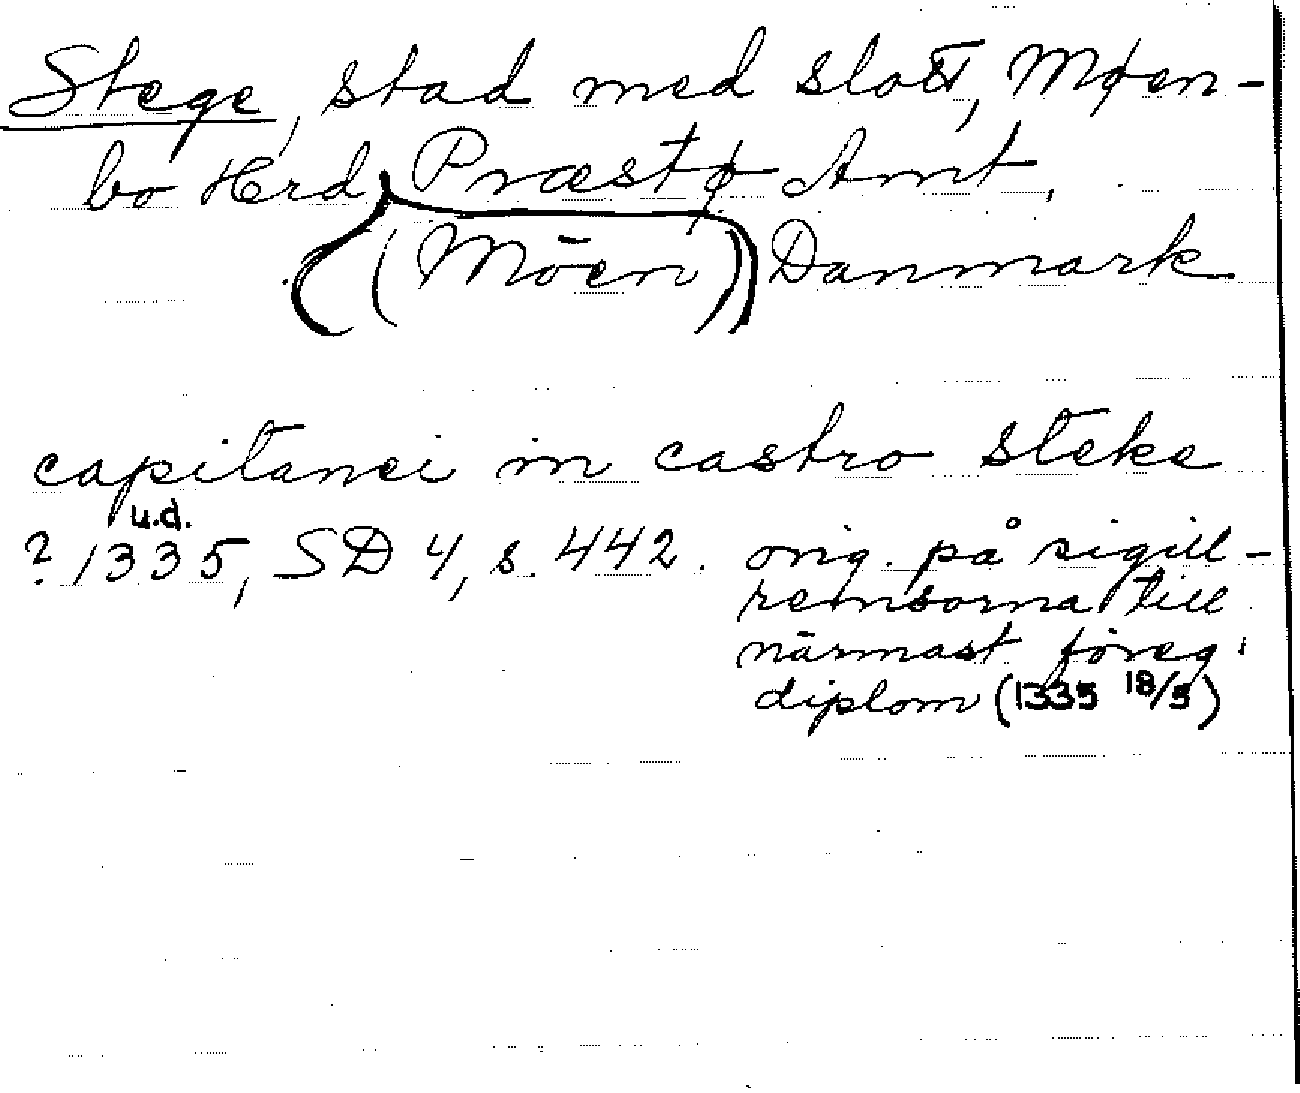 Stege, stad med slott, Møen-
bo Herd Præstø Amt,
(Möen) Danmark
capitanei in castro Steke
u.d.
? 1335, SD 4, s. 442. orig. på sigill-
remsorna till
närmast föreg.
diplom (1335 18/5)